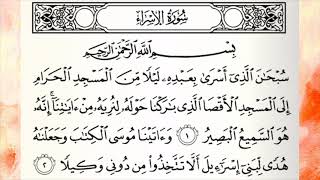 سُورَةُ الْإِسْرَاءِ
بِسْمِ اللَّهِ الرَّحْمَٰنِ الرَّحِيمِ
سُبْحَانَ الَّذِي أَسْرَىٰ بِعَبْدِهِ لَيْلًا مِّنَ الْمَسْجِدِ الْحَرَامِ
إِلَى الْمَسْجِدِ الْأَقْصَا الَّذِي بَارَكْنَا حَوْلَهُ لِنُرِيَهُ مِنْ آيَاتِنَا إِنَّهُ
هُوَ السَّمِيعُ الْبَصِيرُ ١ وَآتَيْنَا مُوسَى الْكِتَابَ وَجَعَلْنَاهُ
هُدًى لِّبَنِي إِسْرَاءِيلَ أَلَّا تَتَّخِذُوا مِن دُونِي وَكِيلًا ٢